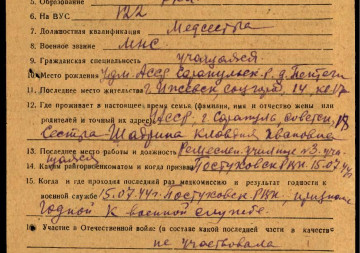 5. Образование
6. На ВУС 122
7. Должностная квалификация Медсестра
8. Военное звание МНС
9. Гражданская специальность учащаяся
10. Место рождения Удм АССР Сарапульск. р. д.
11. Последнее место жительства г. Ижевск соцгород, 14, кв 17
12. Где проживает в настоящее время семья (фамилия, имя и отчество жены или
родителей и точный их адрес) АССР, г. Сарапуль, советск,
Сестра Клавдия Ивановна
13. Последнее место работы и должность Ремеслен. училище № 3. уча-
щаяся
14. Каким райгорвоенкоматом и когда призван Пастуховск РВК 15.07.44г
15. Когда и где проходил последний раз медкомиссию и результат годности к
военной службе 15.07.44г. Пастуховск РВК, признан
годной к военной службе.
16. Участие в Отечественной войне (в составе какой последней части в качестве
не участвовала